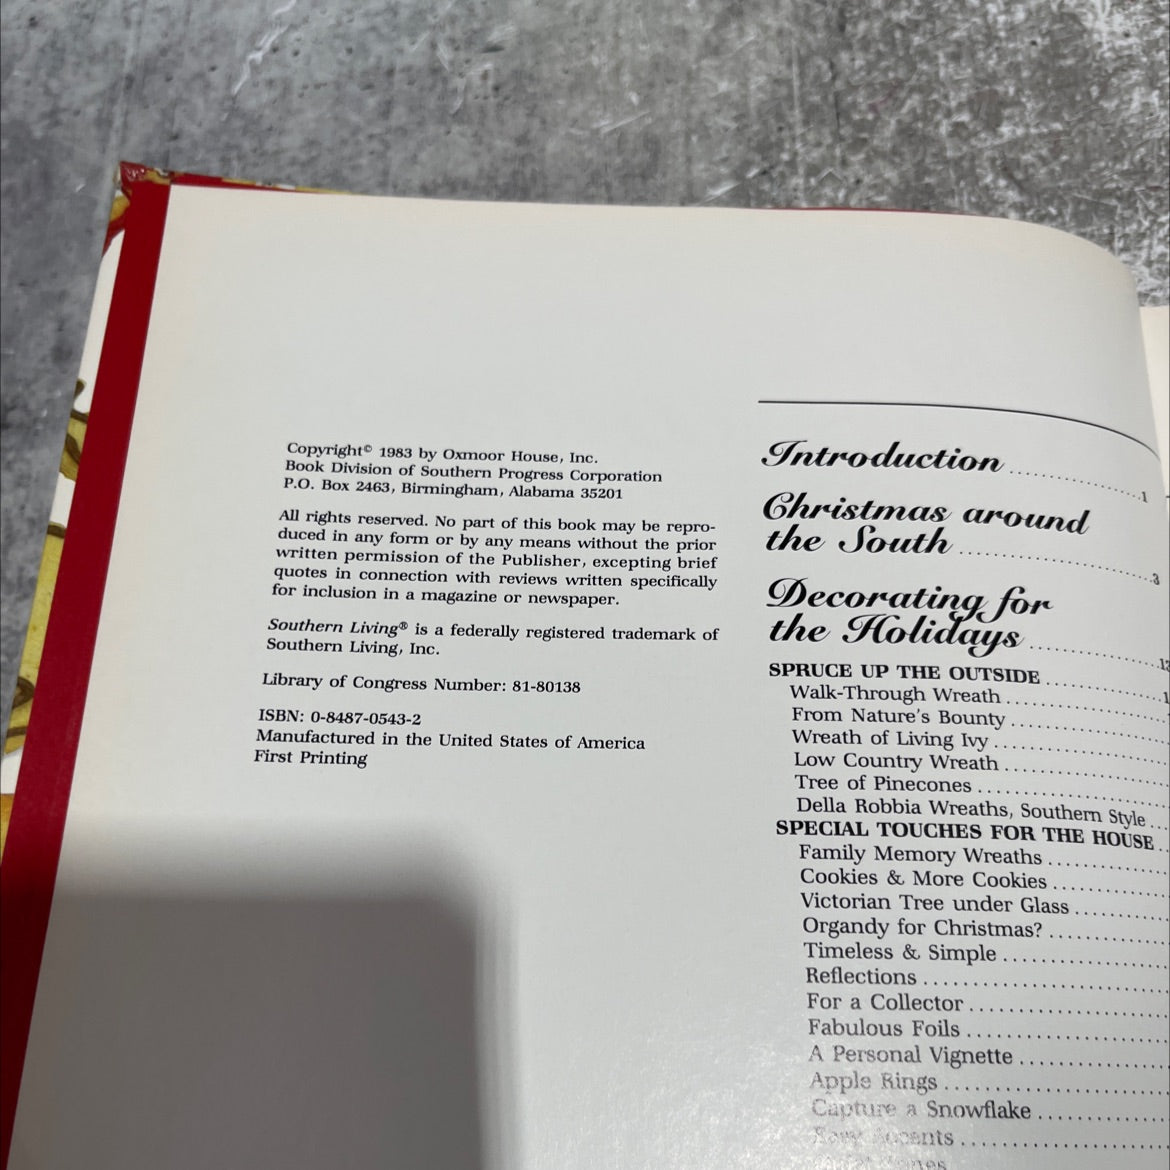 Copyright© 1983 by Oxmoor House, Inc.
Book Division of Southern Progress Corporation
P.O. Box 2463, Birmingham, Alabama 35201
All rights reserved. No part of this book may be repro-
duced in any form or by any means without the prior
written permission of the Publisher, excepting brief
quotes in connection with reviews written specifically
for inclusion in a magazine or newspaper.
Southern Living® is a federally registered trademark of
Southern Living, Inc.
Library of Congress Number: 81-80138
ISBN: 0-8487-0543-2
Manufactured in the United States of America
First Printing
Introduction ..................... 1
Christmas around
the South ........................ 3
Decorating for
the Holidays ..................
SPRUCE UP THE OUTSIDE ..............
Walk-Through Wreath ..................
From Nature's Bounty ..................
Wreath of Living Ivy ..................
Low Country Wreath ..................
Tree of Pinecones ..................
Della Robbia Wreaths, Southern Style ...
SPECIAL TOUCHES FOR THE HOUSE ..
Family Memory Wreaths ..............
Cookies & More Cookies ..............
Victorian Tree under Glass ............
Organdy for Christmas? ..............
Timeless & Simple ..................
Reflections ........................
For a Collector ....................
Fabulous Foils ....................
A Personal Vignette ................
Apple Rings ......................
Capture a Snowflake ................
Accents ......................